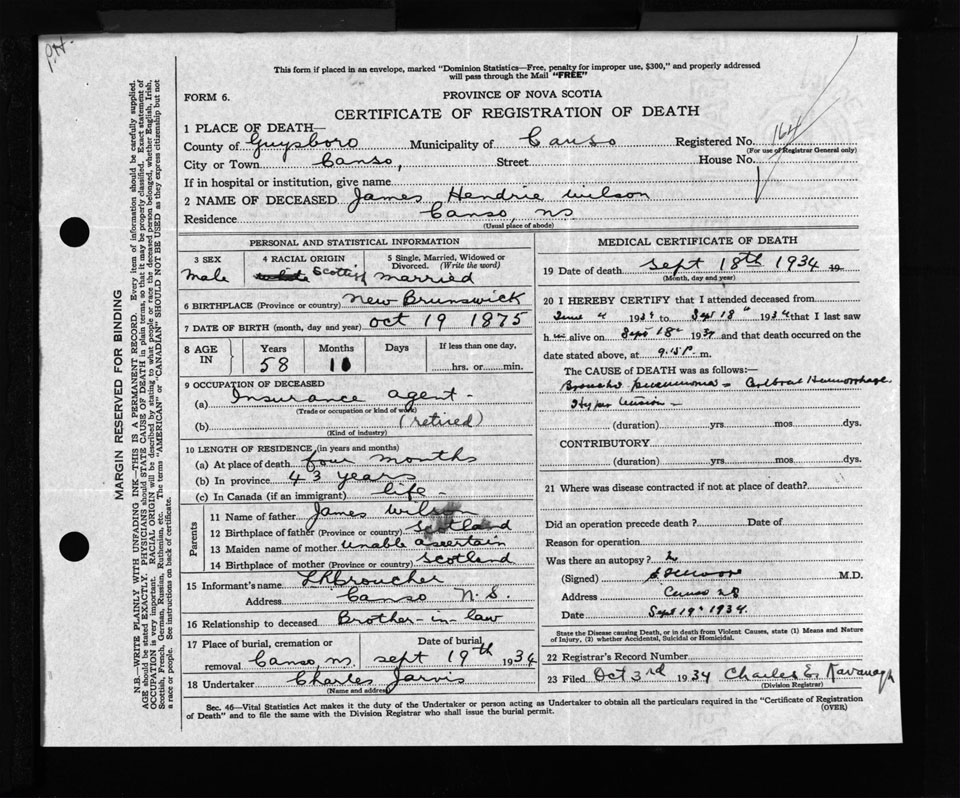 P.H.
This form if placed in an envelope, marked "Dominion Statistics—Free, penalty for improper use, $300," and properly addressed
will pass through the Mail "FREE"
FORM 6.
PROVINCE OF NOVA SCOTIA
CERTIFICATE OF REGISTRATION OF DEATH
1 PLACE OF DEATH—
County of Guysboro Municipality of Canso Registered No. 164
(For use of Registrar General only)
City or Town Canso, Street House No.
If in hospital or institution, give name
2 NAME OF DECEASED James Hendrie Wilson
Residence Canso, NS
(Usual place of abode)
PERSONAL AND STATISTICAL INFORMATION
3 SEX 4 RACIAL ORIGIN 5 Single, Married, Widowed or
Divorced. (Write the word)
male Scottish married
6 BIRTHPLACE (Province or country) New Brunswick
7 DATE OF BIRTH (month, day and year) Oct 19 1875
8 AGE IN Years Months Days If less than one day,
58 10 hrs. or min.
9 OCCUPATION OF DECEASED
(a) Insurance agent -
(Trade or occupation or kind of work)
(b) (retired)
(Kind of industry)
10 LENGTH OF RESIDENCE (in years and months)
(a) At place of death four months
(b) In province 43 years
(c) In Canada (if an immigrant) life -
Parents
11 Name of father James Wilson
12 Birthplace of father (Province or country) Scotland
13 Maiden name of mother unable ascertain
14 Birthplace of mother (Province or country) Scotland
15 Informant's name Croucher
Address Canso N.S.
16 Relationship to deceased Brother-in-law
17 Place of burial, cremation or Date of burial
removal Canso, NS. Sept 19th 1934
18 Undertaker Charles Jarvis
(Name and address)
MEDICAL CERTIFICATE OF DEATH
19 Date of death Sept 18th 1934 19
(Month, day and year)
20 I HEREBY CERTIFY that I attended deceased from
June 1934 to Sept 18" 1934 that I last saw
h im alive on Sept 18" 1934 and that death occurred on the
date stated above, at 9.15 P. m.
The CAUSE of DEATH was as follows:
Broncho pneumonia - Celbral Hemorrhage
Hyper tension -
(duration) yrs. mos. dys.
CONTRIBUTORY
(duration) yrs. mos. dys.
21 Where was disease contracted if not at place of death?
Did an operation precede death? Date of
Reason for operation
Was there an autopsy?
(Signed) M.D.
Address Canso NS
Date Sept 19" 1934.
State the Disease causing Death, or in death from Violent Causes, state (1) Means and Nature
of Injury, (2) whether Accidental, Suicidal or Homicidal.
22 Registrar's Record Number
23 Filed Oct 3rd 1934 Charles E. Kavanagh
(Division Registrar)
Sec. 46—Vital Statistics Act makes it the duty of the Undertaker or person acting as Undertaker to obtain all the particulars required in the "Certificate of Registration
of Death" and to file the same with the Division Registrar who shall issue the burial permit.
(OVER)
MARGIN RESERVED FOR BINDING
N.B.—WRITE PLAINLY WITH UNFADING INK—THIS IS A PERMANENT RECORD. Every item of information should be carefully supplied.
AGE should be stated EXACTLY. PHYSICIANS should STATE CAUSE OF DEATH in plain terms, so that it may be properly classified. Exact statement of
OCCUPATION is very important. RACIAL ORIGIN will be described by stating to what people or race the deceased person belonged, whether English, Irish,
Scottish, French, German, Russian, Ruthenian, etc. The terms "AMERICAN" or "CANADIAN" SHOULD NOT BE USED as they express citizenship but not
a race or people. See instructions on back of certificate.